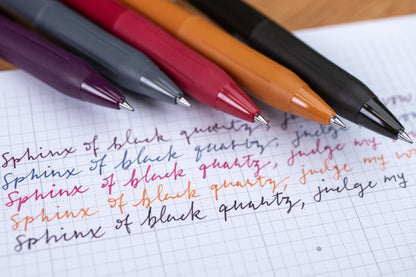 Sphinx of black quartz,
Sphinx of black quartz, judge
Sphinx of black quartz, judge my
Sphinx of black quartz, judge my
Sphinx of black quartz, judge my